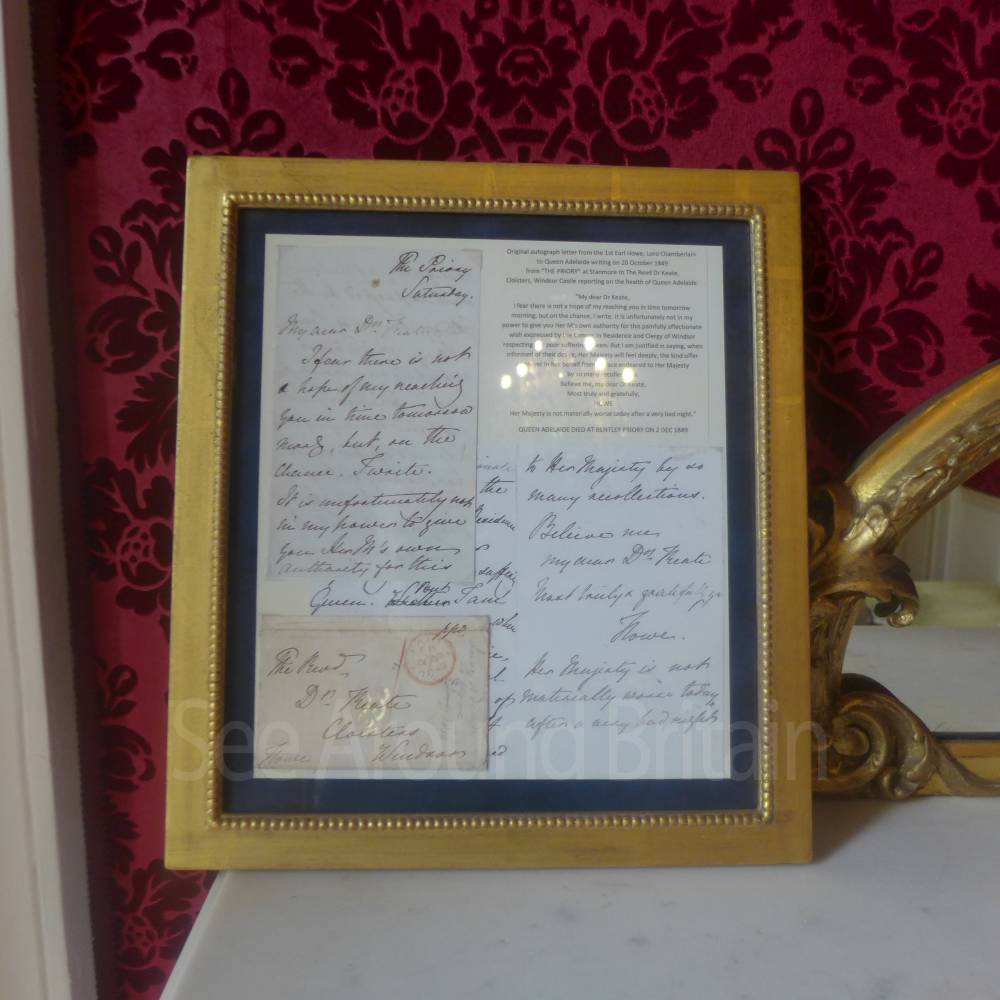 The Priory
Saturday.
My dear Dr. Keate
I fear there is not
a hope of my reaching
you in time tomorrow
morng, but, on the
chance, I write.
It is unfortunately not
in my power to give
you Her M's own
authority for this
Queen.
The Revd
Dr. Keate
Cloisters
Howe Windsor
Original autograph letter from the 1st Earl Howe, Lord Chamberlain
to Queen Adelaide writing on 20 October 1849
from "THE PRIORY" at Stanmore to The Reed Dr Keate,
Cloisters, Windsor Castle reporting on the health of Queen Adelaide.
"My dear Dr Keate,
I fear there is not a hope of my reaching you in time tomorrow
morning, but on the chance, I write. It is unfortunately not in my
power to give you Her M's own authority for this painfully affectionate
wish expressed by the Canons in Residence and Clergy of Windsor
respecting poor suffering Queen. But I am justified in saying, when
informed of their desire, Her Majesty will feel deeply, the kind offer
in her behalf from endeared to Her Majesty
By so many
Believe me, my dear Dr Keate,
Most truly and gratefully,
HOWE
Her Majesty is not materially worse today after a very bad night."
QUEEN ADELAIDE DIED AT BENTLEY PRIORY ON 2 DEC 1849
the
to Her Majesty by so
many recollections.
Believe me
my dear Dr. Keate
Most truly & gratefully yrs
Howe.
Her Majesty is not
materially worse today
after a very bad night
See Around Britain